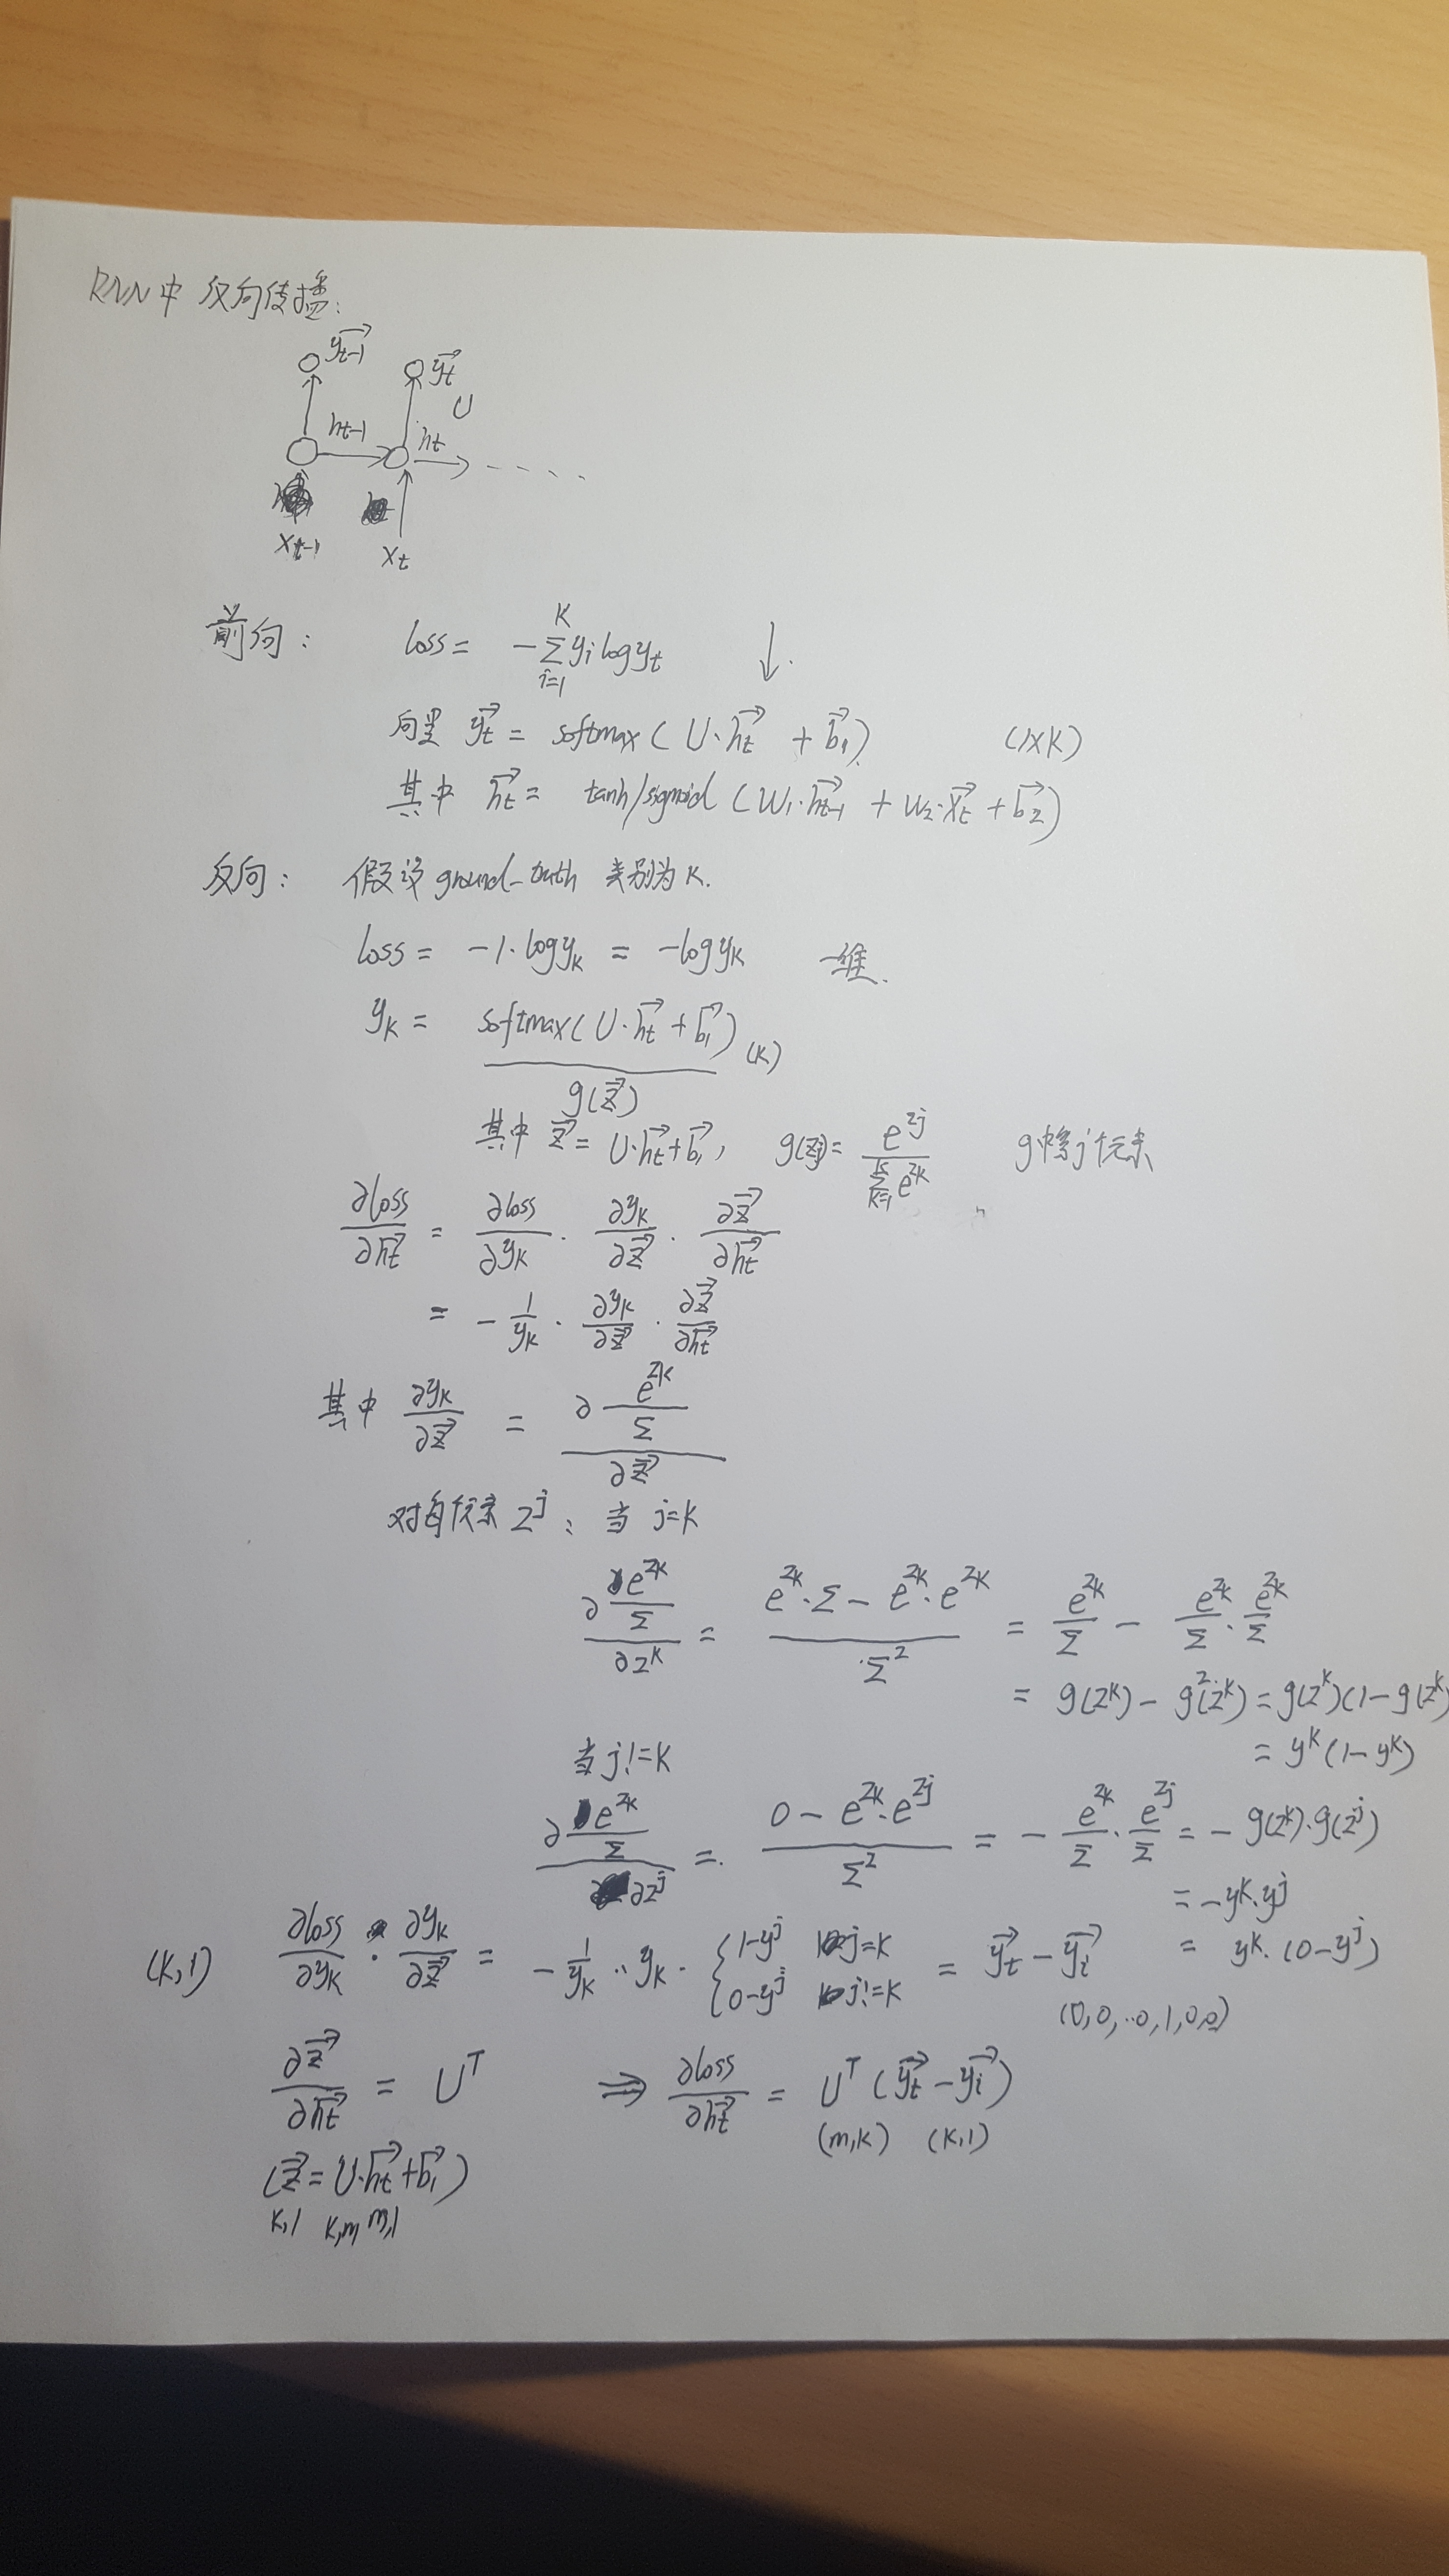 RNN中 反向传播:
y⃗t-1 y⃗t
U
ht-1 ht
xt-1 xt
前向: loss = -∑_{i=1}^{K} yi log yt ↓.
向量 y⃗t = softmax(U·h⃗t + b⃗1) (1×K)
其中 h⃗t = tanh/sigmoid (W1·h⃗t-1 + W2·x⃗t + b⃗2)
反向: 假设 ground-truth 类别为 K.
loss = -1·log yK = -log yK 一维.
yK = softmax(U·h⃗t + b⃗1)(K)
g(z⃗)
其中 z⃗ = U·h⃗t + b⃗1, g(zj) = e^{zj} / ∑_{K=1}^{K} e^{zK} g中第j个元素
∂loss/∂h⃗t = ∂loss/∂yK · ∂yK/∂z⃗ · ∂z⃗/∂h⃗t
= - 1/yK · ∂yK/∂z⃗ · ∂z⃗/∂h⃗t
其中 ∂yK/∂z⃗ = ∂(e^{zK}/Σ) / ∂z⃗
对每个元素 z^j: 当 j=K
∂(e^{zK}/Σ) / ∂z^K = (e^{zK}·Σ - e^{zK}·e^{zK}) / Σ² = e^{zK}/Σ - e^{zK}/Σ · e^{zK}/Σ
= g(z^K) - g²(z^K) = g(z^K)(1-g(z^K)
= y^K(1-y^K)
当 j!=K
∂(e^{zK}/Σ) / ∂z^j = (0 - e^{zK}·e^{zj}) / Σ² = - e^{zK}/Σ · e^{zj}/Σ = - g(z^K)·g(z^j)
= -y^K·y^j
= y^K·(0-y^j)
(K,1) ∂loss/∂yK · ∂yK/∂z⃗ = - 1/yK · yK · { 1-y^j j=K
0-y^j j!=K = y⃗t - y⃗i
(0,0,..0,1,0,0)
∂z⃗/∂h⃗t = U^T ⇒ ∂loss/∂h⃗t = U^T (y⃗t - y⃗i)
(m,K) (K,1)
(z⃗ = U·h⃗t + b⃗1)
K,1 K,m m,1